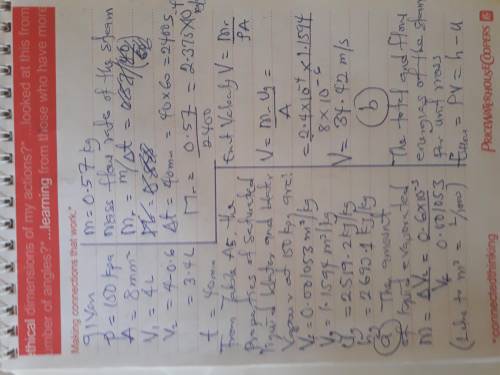 ethical dimensions of my actions?" ...looked at this from
number of angles?" ...learning from those who have more
Making connections that work.*
given
P = 150 kpa
A = 8mm²
V₁ = 4L
V₂ = 4-0.6
= 3.4L
t = 40mn
From Table A5, the
Properties of Saturated
liquid Water and Water
Vapour at 150 kpa are:
Vf = 0.001053 m³/kg
Vg = 1.1594 m³/kg
Ug = 2519.2 kJ/kg
hg = 2693.1 kJ/kg
a) The amount
of liquid evaporated
m = ΔVL = 0.6×10⁻³
Vf 0.001053
(Litre to m³ = L/1000)
m = 0.57 kg
mass flow rate of the steam
Mr = m/Δt =
Δt = 40mn = 40×60 = 2400s
Mr = 0.57 = 2.375×10⁻⁴
2400
Exit Velocity V = Mr
PA
V = m.Vg =
A
= 2.4×10⁻⁴ × 1.1594
8×10⁻⁶
V = 34.42 m/s
b
The total and flow
energies of the steam
per unit mass
= PV = h-u
PRICEWATERHOUSECOOPERS
*connectedthinking